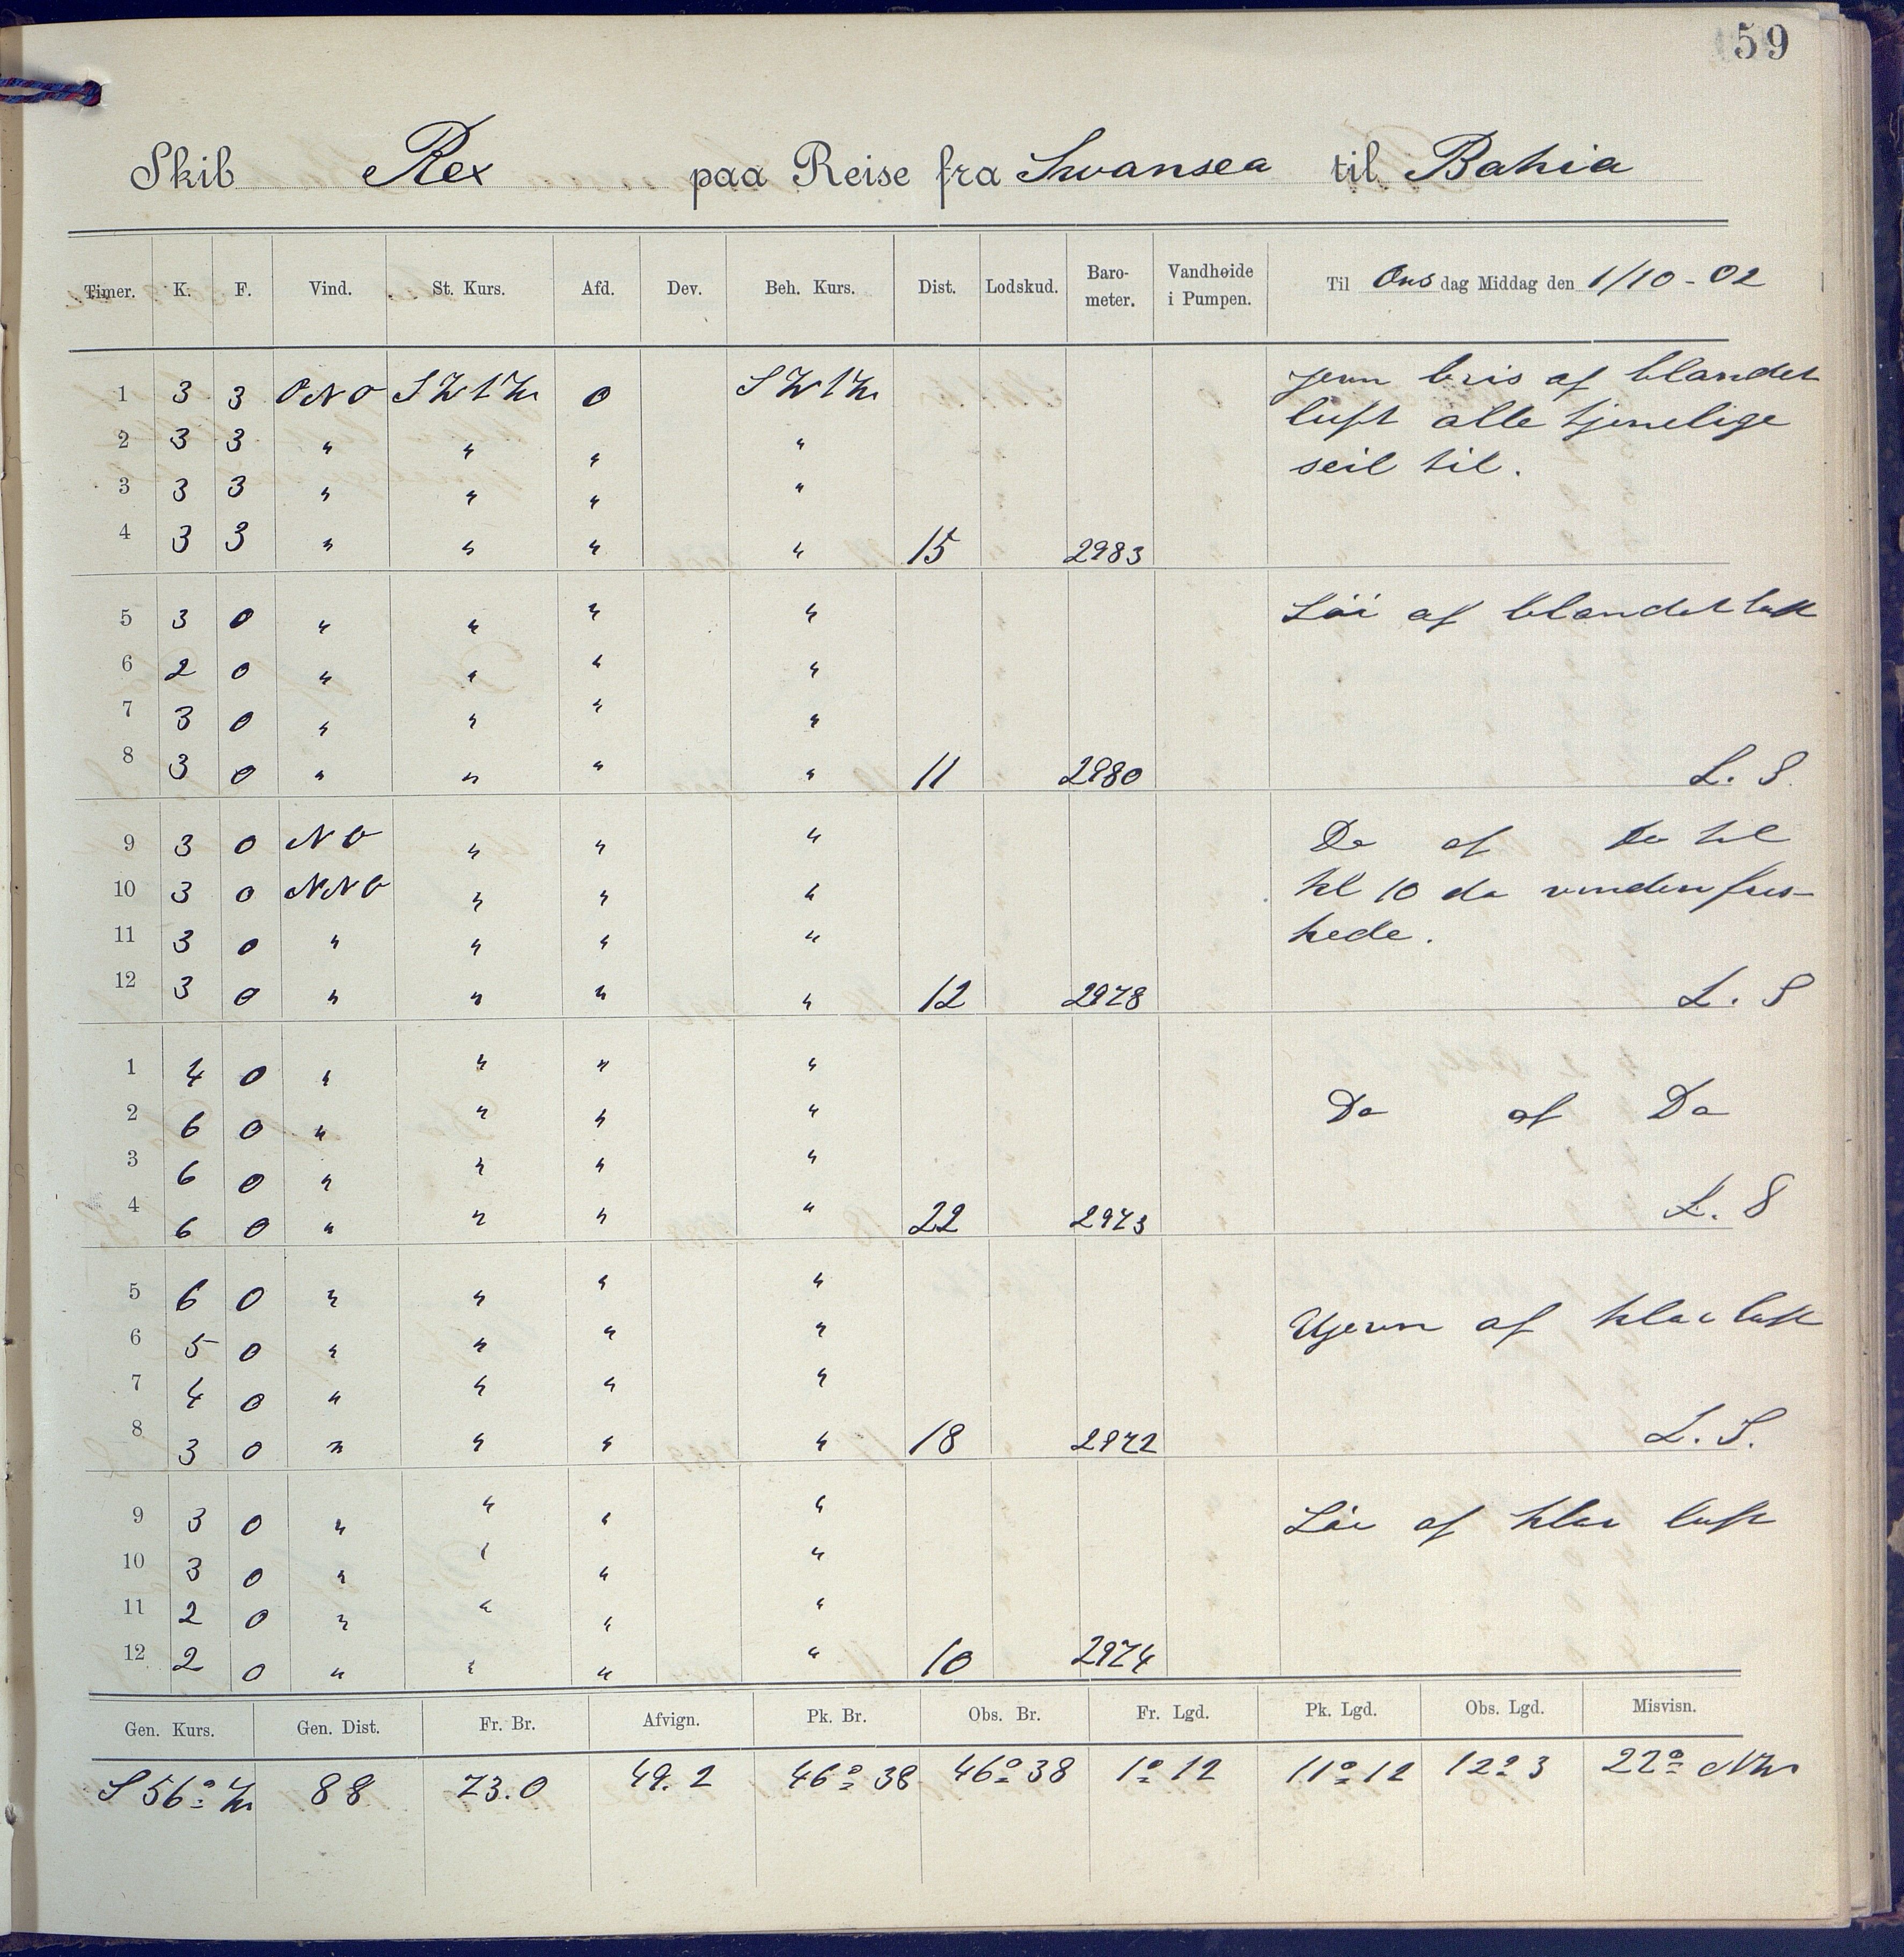 59
Skib Rex paa Reise fra Swansea til Bahia
Timer. K. F. Vind. St. Kurs. Afd. Dev. Beh. Kurs. Dist. Lodskud. Baro-meter. Vandhøide i Pumpen. Til Onsdag Middag den 1/10-02
1 3 3 ONO SWtW 0 SWtW jevn bris af blandet
2 3 3 " " " " luft alle tjenelige
3 3 3 " " " " seil til.
4 3 3 " " " " 15 2983
5 3 0 " " " " Løi af blandet luft
6 2 0 " " " "
7 3 0 " " " "
8 3 0 " " " " 11 2980 L. S.
9 3 0 NO " " " Do af Do til
10 3 0 NNO " " " kl 10 da vinden fris-
11 3 0 " " " " kede.
12 3 0 " " " " 12 2978 L. S
1 4 0 " " " "
2 6 0 " " " " Do af Do
3 6 0 " " " "
4 6 0 " " " " 22 2973 L. S
5 6 0 " " " "
6 5 0 " " " " Ujevn af klar luft
7 4 0 " " " "
8 3 0 " " " " 18 2972 L. S.
9 3 0 " " " " Løi af klar luft
10 3 0 " " " "
11 2 0 " " " "
12 2 0 " " " " 10 2974
Gen. Kurs. Gen. Dist. Fr. Br. Afvign. Pk. Br. Obs. Br. Fr. Lgd. Pk. Lgd. Obs. Lgd. Misvisn.
S 56° W 88 73.0 49.2 46° 38 46° 38 1° 12 11° 12 12° 3 22° NW